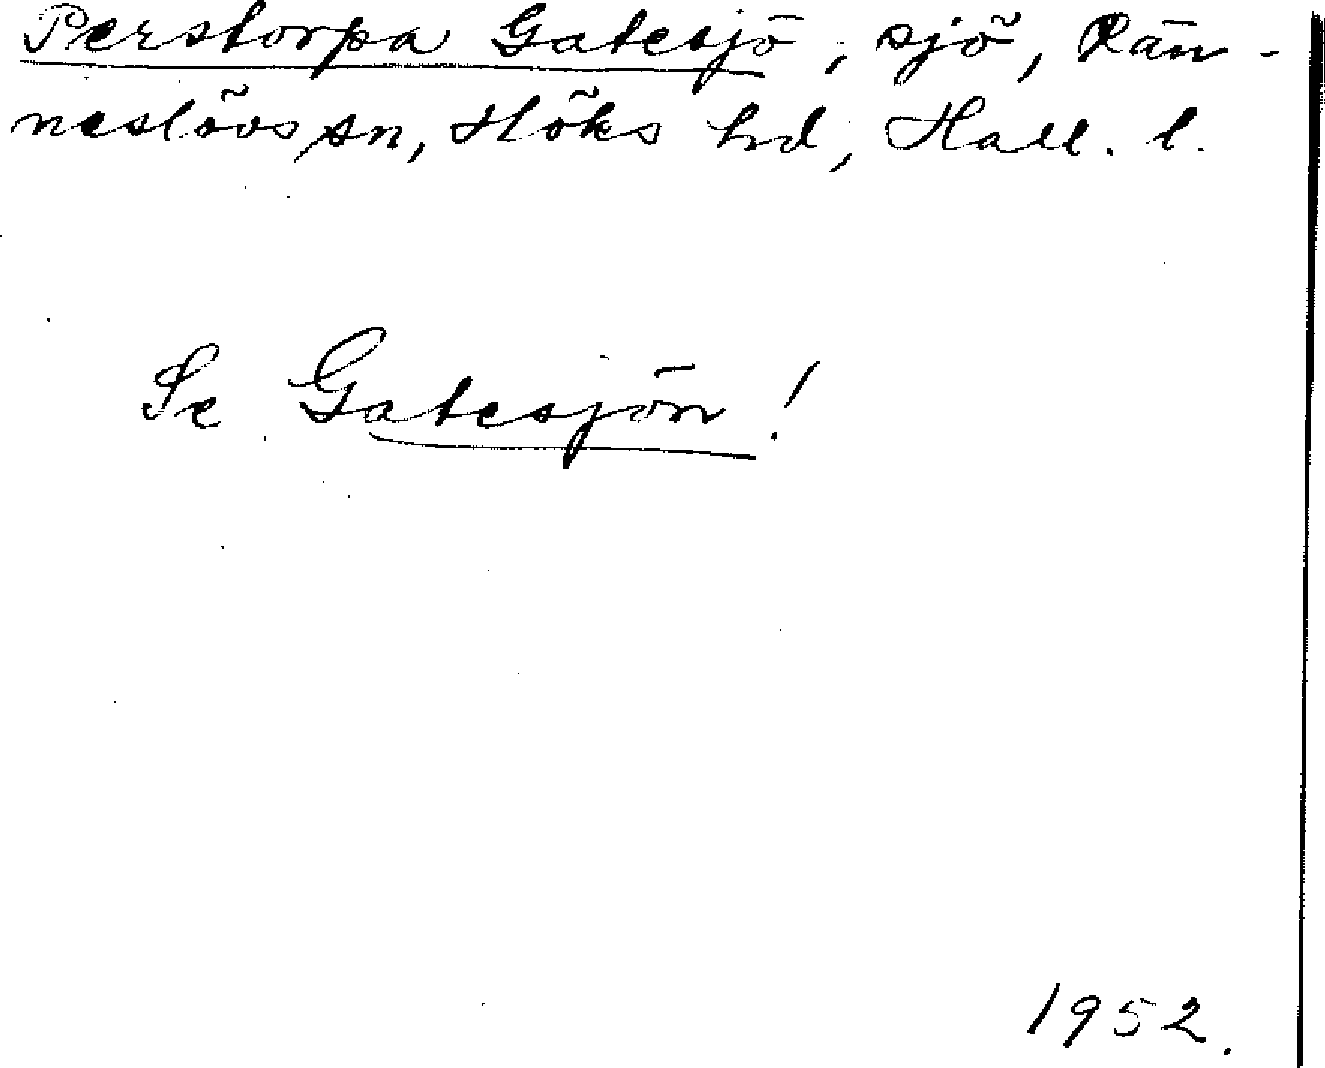 Perstorpa Gatesjö, sjö, Rän-
neslövs sn, Höks hd, Hall. l.
Se Gatesjön!
1952.